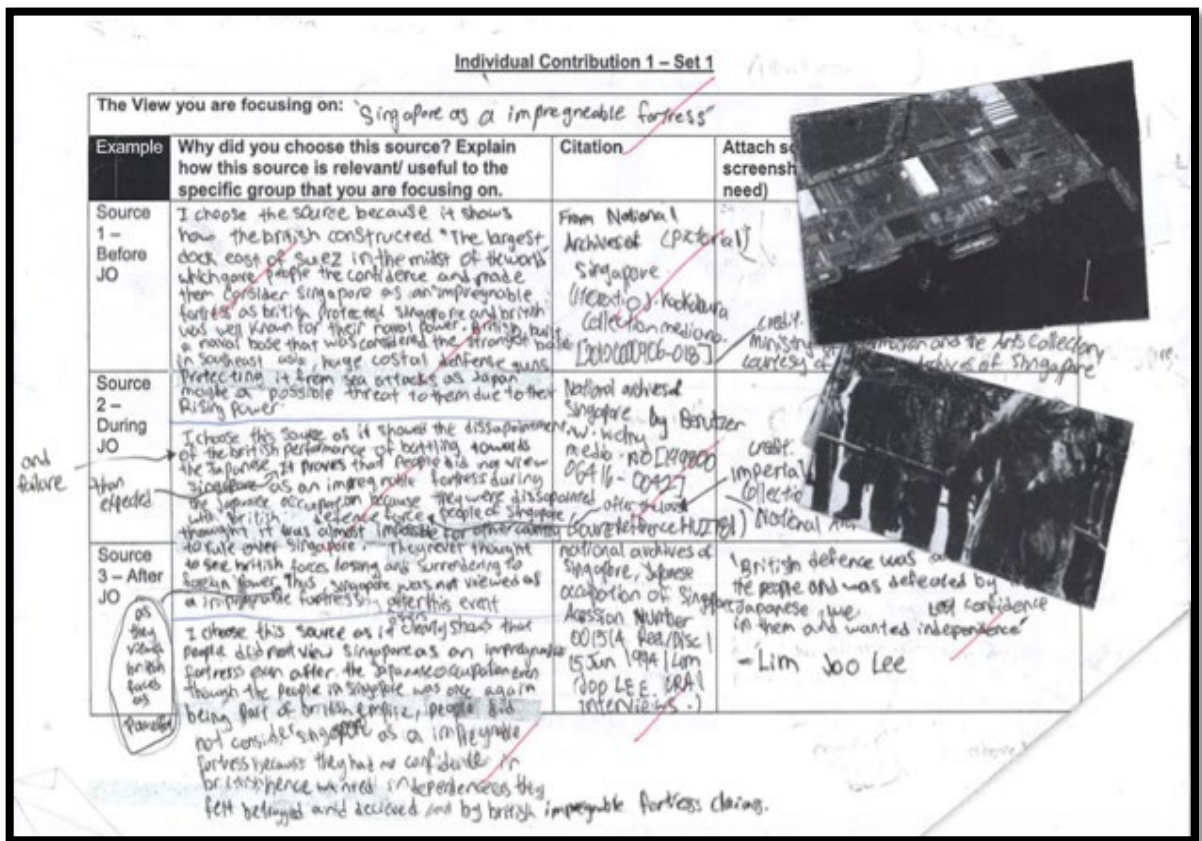 Individual Contribution 1 – Set 1
The View you are focusing on: "Singapore as a impregneable fortress"
Example
Why did you choose this source? Explain
how this source is relevant/ useful to the
specific group that you are focusing on.
Citation
Attach
screensh
need)
Source
1 –
Before
JO
I choose the source because it shows
how the british constructed "The largest
dock east of suez in the midst of the world"
which gave people the confidence and made
them consider Singapore as an impregnable
fortress as british protected singapore and british
was well known for their naval power. British built
a naval base that was considered the strongest base
in Southeast asia, huge costal defense guns
Protecting it from sea attacks as Japan
maybe a possible threat to them due to their
Rising power.
From National
Archives of (pictorial)
Singapore
Kookabura
Collection media no.
credit.
ministry of and the Arts Collection
courtesy of Archives of Singapore
Source
2 –
During
JO
I choose this source as it showed the dissapointment
and
failure
of the british performance of battling towards
the Japanese. It proves that people did not view
than
expected
singapore as an impregnable fortress during
the japanese occupation because they were dissapointed
with british defence force
people of singapore
after
thought it was almost for other country
to rule over singapore. They never thought
to see british forces losing and surrendering to
foreign power. Thus, singapore was not viewed as
a impregnable fortress after this event
National archives of
Singapore by
media - no
credit.
imperial
Collection
National
Source
3 – After
JO
as
they
view
british
forces
as
I choose this source as it clearly shows that
people did not view singapore as an impregnable
fortress even after the Japanese occupation even
though the people in singapore was once again
being part of british empire, people did
not consider singapore as a impregnable
fortress because they had no confidence in
british hence wanted independence as they
felt betrayed and decieved by british impregnable fortress claims.
national archives of
singapore, Japanese
occupation of Singapore
Acession Number
001514 Reel/Disc 1
15 Jun 1994 Lim
Joo LEE.
interviews.
"British defence was
the people and was defeated by
Japanese, we lost confidence
in them and wanted independence"
- Lim Joo Lee